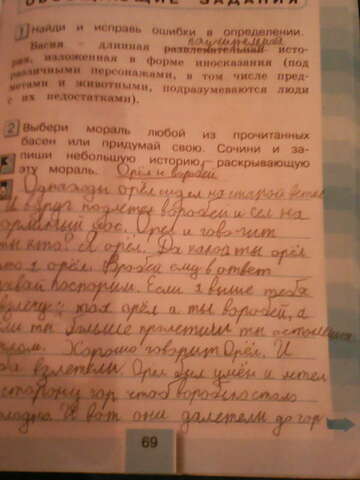 ОБОБЩАЮЩИЕ ЗАДАНИЯ
1 Найди и исправь ошибки в определении.
поучительная
Басня – длинная развлекательная исто-
рия, изложенная в форме иносказания (под
различными персонажами, в том числе пред-
метами и животными, подразумеваются люди
с их недостатками).
2 Выбери мораль любой из прочитанных
басен или придумай свою. Сочини и за-
пиши небольшую историю, раскрывающую
эту мораль. Орёл и воробей
Однажды орёл сидел на старой ветке
И вдруг подлетел воробей и сел на
Орёл и говорит
ты кто? Я орёл. Да какой ты орёл
это я орёл. Воробей ему в ответ
давай поспорим. Если я выше тебя
взлечу я орёл а ты воробей, а
если ты дальше пролетишь ты
орлом. Хорошо говорит Орёл. И
взлетели. Орёл был умён и летел
сторону гор чтоб воробью стало
холодно. И вот они долетели до гор
69